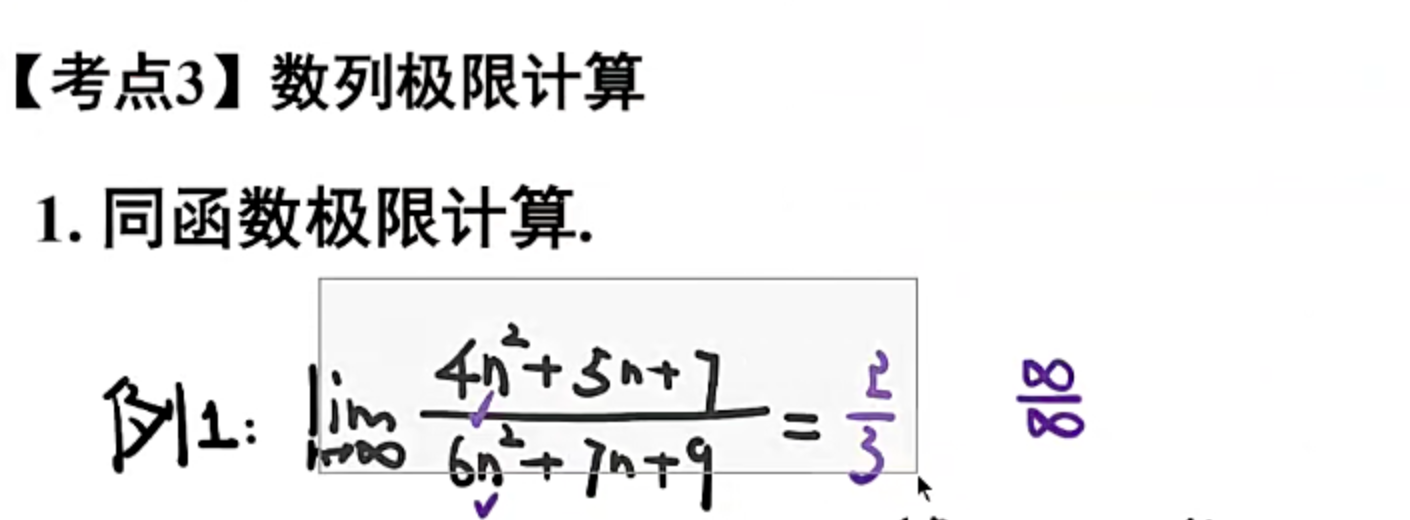 【考点3】数列极限计算
1. 同函数极限计算.
例1: lim n→∞ (4n²+5n+7)/(6n²+7n+9) = 2/3 ∞/∞